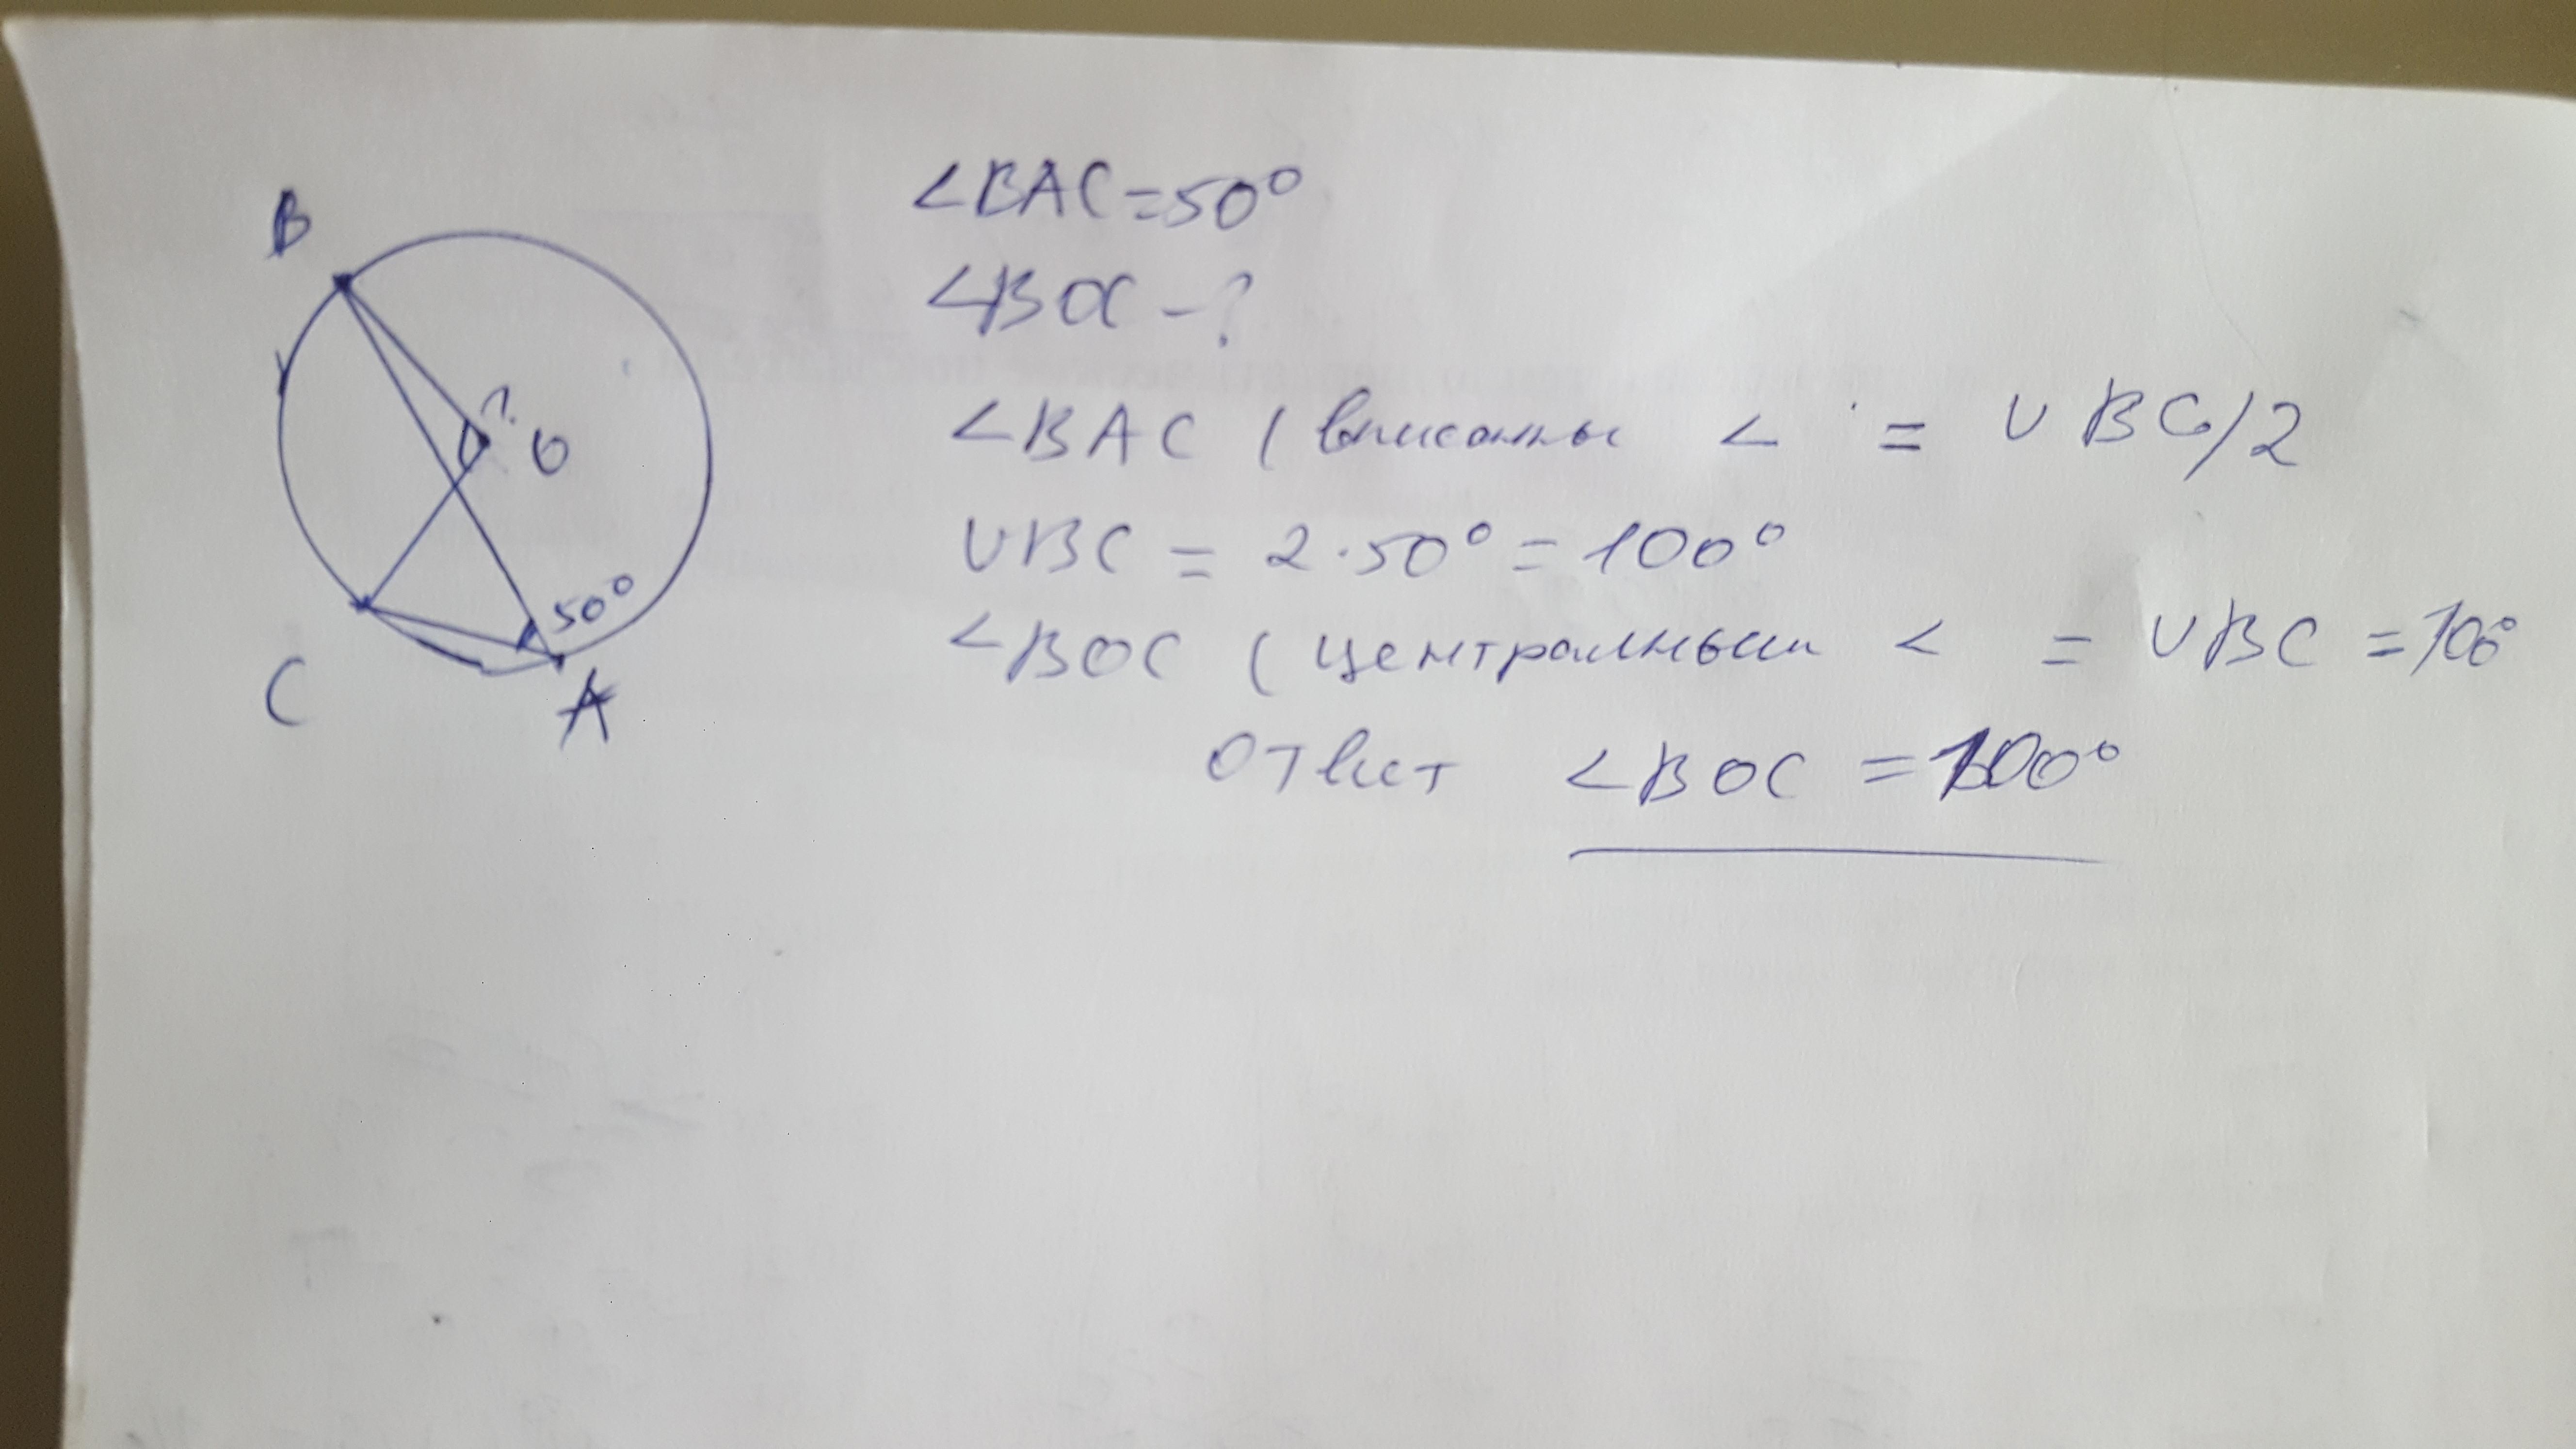 B
? O
50°
C
A
<BAC=50°
<BOC-?
<BAC ( вписаны < = ∪BC/2
∪BC = 2·50°=100°
<BOC ( централным < = ∪BC =100°
ответ <BOC =100°